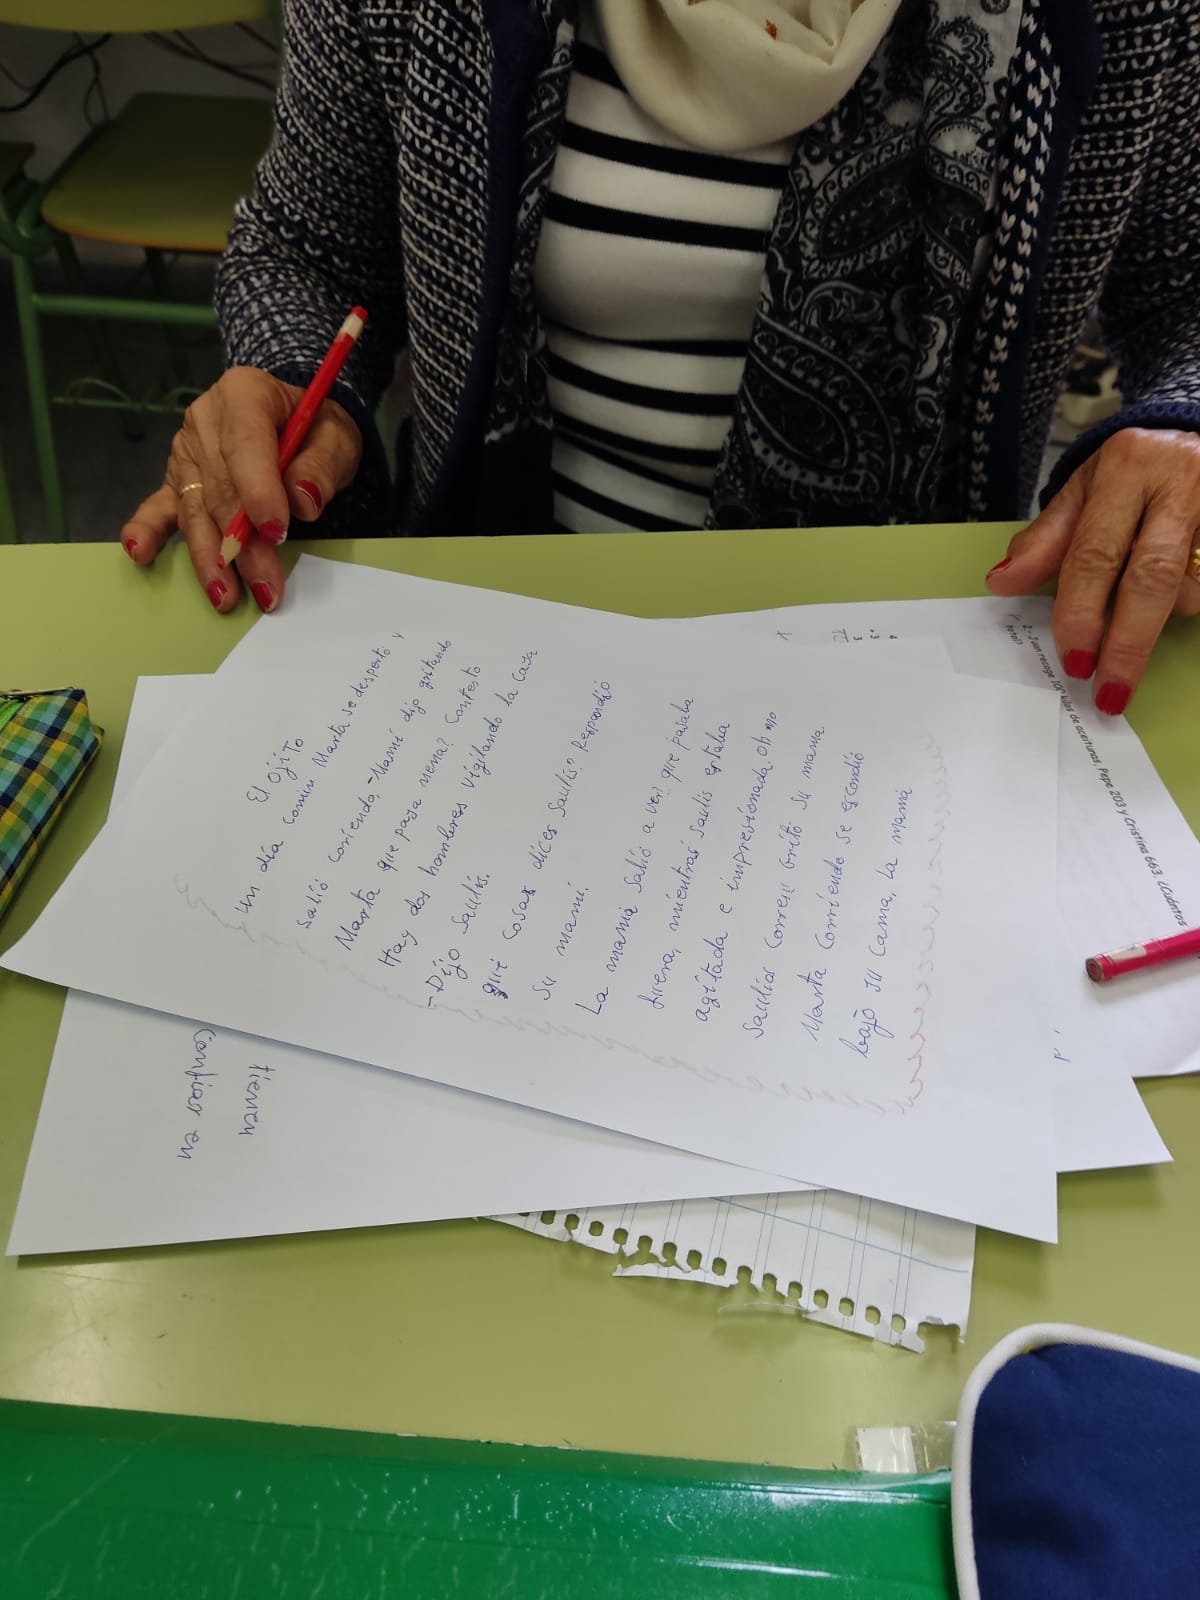 El Ojito
Un día comun Marta se despertó y
salió corriendo, -Mamí dijo gritando
Marta que pasa nena? Contesto
Hay dos hombres vigilando la casa
- Dijo Saulis.
qué cosas dices Saulis? Respondió
su mamí.
La mamá salió a ver que pasaba
fuera, mientras Saulis estaba
agitada e impresionada. Oh no
Saulis corre!! Gritó su mama
Marta corriendo se escondió
bajo su cama, la mamá
tienen
Confiar en
2.- Juan recoge 100 kilos de aceitunas, Pepe 203 y Cristina 663. ¿Cuántos
total?
4
+3
3